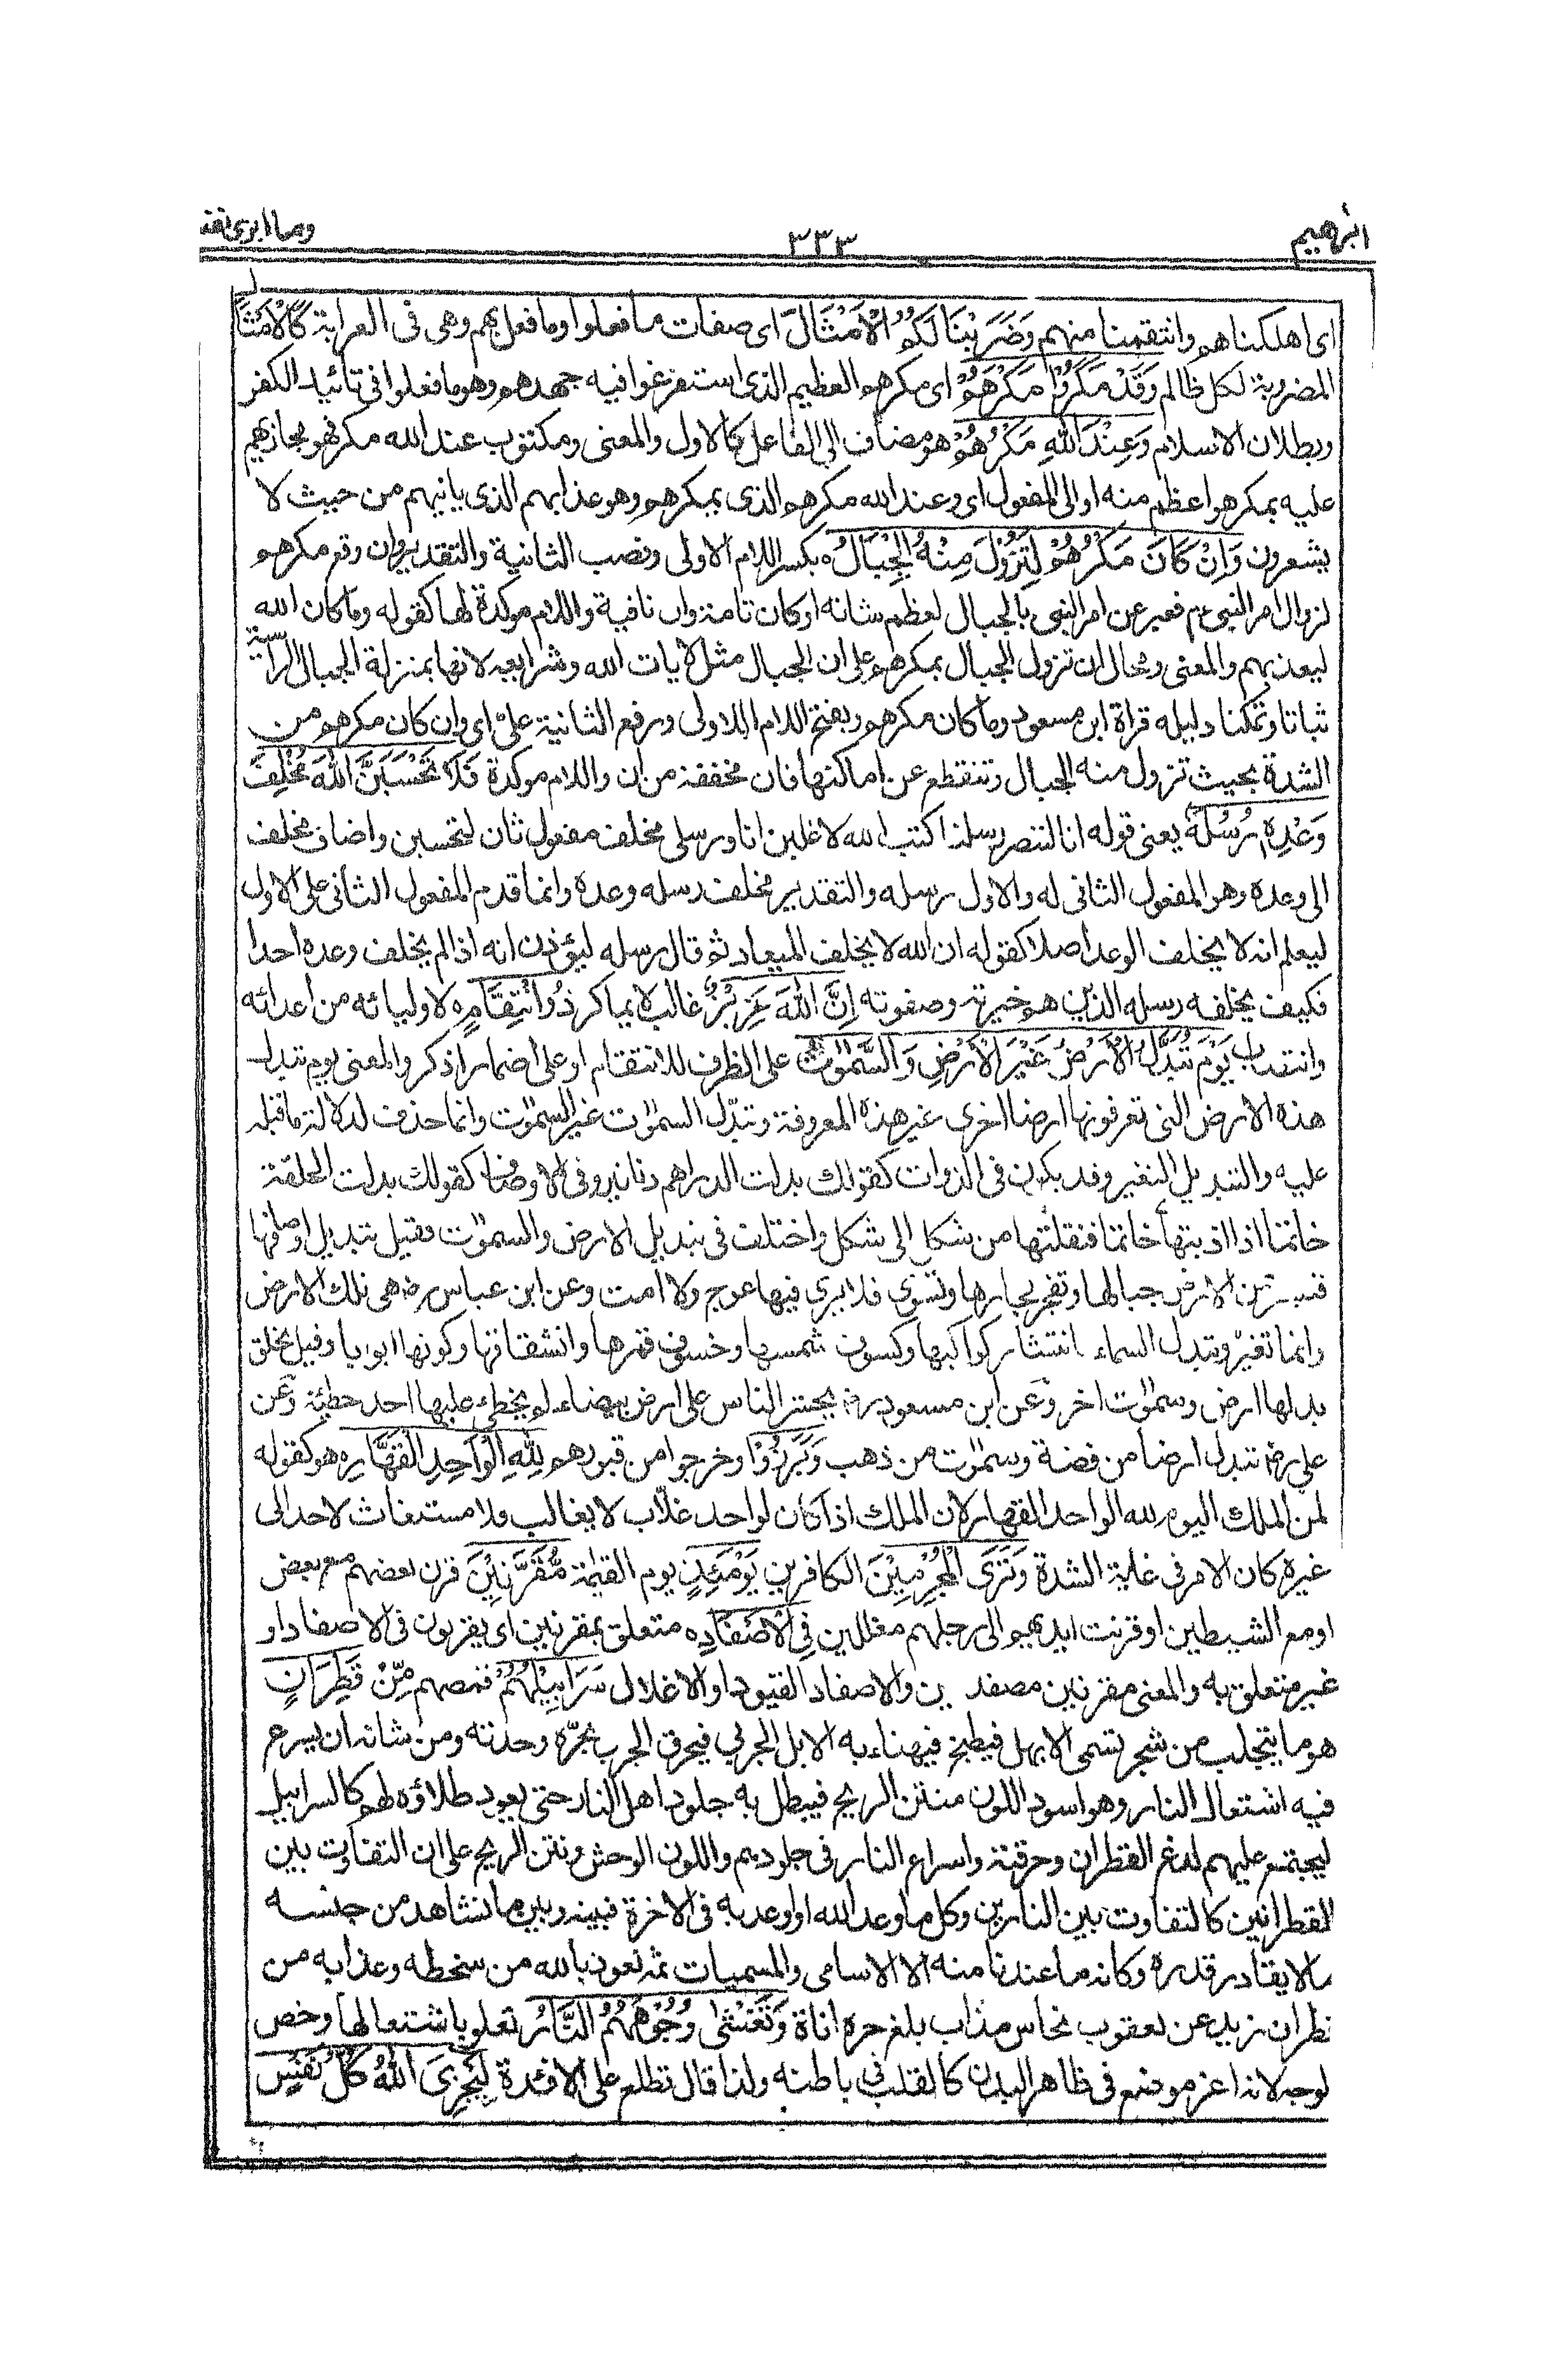 ابرٰهيم ٣٣٣ وما ابرئ ١٣
اى اهلكناهم وانتقمنا منهم وَضَرَبْنَا لَكُمُ الْاَمْثَالَ اى صفات ما فعلوا وما فعل بهم وهى فى الغرابة كالامثال
المضروبة لكل ظالم وَقَدْ مَكَرُوْا مَكْرَهُمْ اى مكرهم العظيم الذى استفرغوا فيه جهدهم وهو ما فعلوا فى تائيد الكفر
وبطلان الاسلام وَعِنْدَ اللهِ مَكْرُهُمْ هو مضاف الى الفاعل كالاول والمعنى ومكتوب عند الله مكرهم فهو يجازيهم
عليه بمكر هو اعظم منه او الى المفعول اى وعند الله مكرهم الذى يمكرهم وهو عذابهم الذى ياتيهم من حيث لا
يشعرون وَاِنْ كَانَ مَكْرُهُمْ لِتَزُوْلَ مِنْهُ الْجِبَالُ ه بكسر اللام الاولى ونصب الثانية والتقدير وان وقع مكرهم
لزوال امر النبى عم فعبر عن امر النبى بالجبال لعظم شانه او كان تامة وان نافية واللام موكدة لها كقوله وما كان الله
ليعذبهم والمعنى ومحال ان تزول الجبال بمكرهم على ان الجبال مثل لايات الله وشرايعه لانها بمنزلة الجبال الراسية
ثباتا وتمكنا دليله قراة ابن مسعود وما كان مكرهم وبفتح اللام الاولى ورفع الثانية علىّ اى وان كان مكرهم من
الشدة بحيث تزول منه الجبال وتنقطع عن اماكنها فان مخففة من ان واللام موكدة فَلَا تَحْسَبَنَّ اللهَ مُخْلِفَ
وَعْدِهٖ رُسُلَهٗ يعنى قوله انا لننصر رسلنا كتب الله لاغلبن انا ورسلى مخلف مفعول ثان لتحسبن واضاف مخلف
الى وعده وهو المفعول الثانى له والاول رسله والتقدير مخلف رسله وعده وانما قدم المفعول الثانى على الاول
ليعلم انه لا يخلف الوعد اصلا كقوله ان الله لا يخلف الميعاد ثم قال رسله ليؤذن انه اذا لم يخلف وعده احدا
فكيف يخلفه رسله الذين هم خيرته وصفوته اِنَّ اللهَ عَزِيْزٌ غالب لا يماكر ذُو انْتِقَامٍ ه لاوليائه من اعدائه
وانتصاب يَوْمَ تُبَدَّلُ الْاَرْضُ غَيْرَ الْاَرْضِ وَالسَّمٰوٰتُ على الظرف للانتقام او على اضمار اذكر والمعنى يوم تبدل
هذه الارض التى تعرفونها ارضا اخرى غير هذه المعروفة وتبدّل السمٰوٰت غير السمٰوٰت وانما حذف لدلالة ما قبله
عليه والتبديل التغير وقد يكون فى الذوات كقولك بدلت الدراهم دنانير وفى الاوصاف كقولك بدلت الحلقة
خاتما اذا اذبتها خاتما فنقلتها من شكل الى شكل واختلف فى تبديل الارض والسمٰوٰت فقيل تبديل اوصافها
الارض جبالها وتفجر بحارها وتسوى فلا يرى فيها عوج ولا امت وعن ابن عباس رض هى تلك الارض
وانما تغير وتبدل السماء بانتشار كواكبها وكسوف شمسها وخسوف قمرها وانشقاقها وكونها ابوابا وقيل يخلق
بدلها ارض وسمٰوٰت اخر وعن ابن مسعود رض يحشر الناس على ارض بيضاء لم يخطئ عليها احد خطيئة وعن
على رض تبدل ارضا من فضة وسمٰوٰت من ذهب وَبَرَزُوْا وخرجوا من قبورهم لِلّٰهِ الْوَاحِدِ الْقَهَّارِ ه هو كقوله
لمن الملك اليوم لله الواحد القهار لان الملك اذا كان لواحد غلّاب لا يغالب فلا مستغاث لاحد الى
غيره كان الامر فى غاية الشدة وَتَرَى الْمُجْرِمِيْنَ الكافرين يَوْمَئِذٍ يوم القيٰمة مُّقَرَّنِيْنَ قرن بعضهم مع بعض
او مع الشيطين او قرنت ايديهم الى رجلهم مغللين فِى الْاَصْفَادِ ه متعلق بمقرنين اى يقرنون فى الاصفاد او
غير متعلق به والمعنى مقرنين مصفدين والاصفاد القيود او الاغلال سَرَابِيْلُهُمْ قمصهم مِّنْ قَطِرَانٍ
هو ما يتحلب من شجر تسمى الابهل فيطبخ فيهناء به الابل الجربى فيحرق الجرب بحرّه وحدته ومن شانه ان يسرع
فيه اشتعال النار وهو اسود اللون منتن الريح فيطلى به جلود اهل النار حتى يعود طلاؤه لهم كالسرابيل
ليجتمع عليهم لدغ القطران وحرقته واسراع النار فى جلودهم واللون الوحش ونتن الريح على ان التفاوت بين
القطرانين كالتفاوت بين النارين وكل ما وعد الله او اوعد به فى الاخرة فبينه وبين ما نشاهد من جنسه
ما لا يقادر قدره وكانه ما عندنا منه الا الاسامى والمسميات ثمه نعوذ بالله من سخطه وعذابه من
قطران زيد عن يعقوب نحاس مذاب بلغ حره اناة وَتَغْشٰى وُجُوْهَهُمُ النَّارُ تعلو باشتعالها وخص
لوجه لانه اعز موضع فى ظاهر البدن كالقلب فى باطنه ولذا قال تطلع على الافئدة لِيَجْزِىَ اللهُ كُلَّ نَفْسٍ